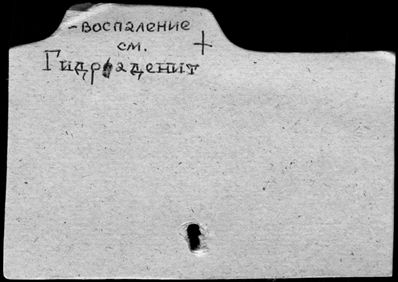 -воспаление
см. +
Гидраденит